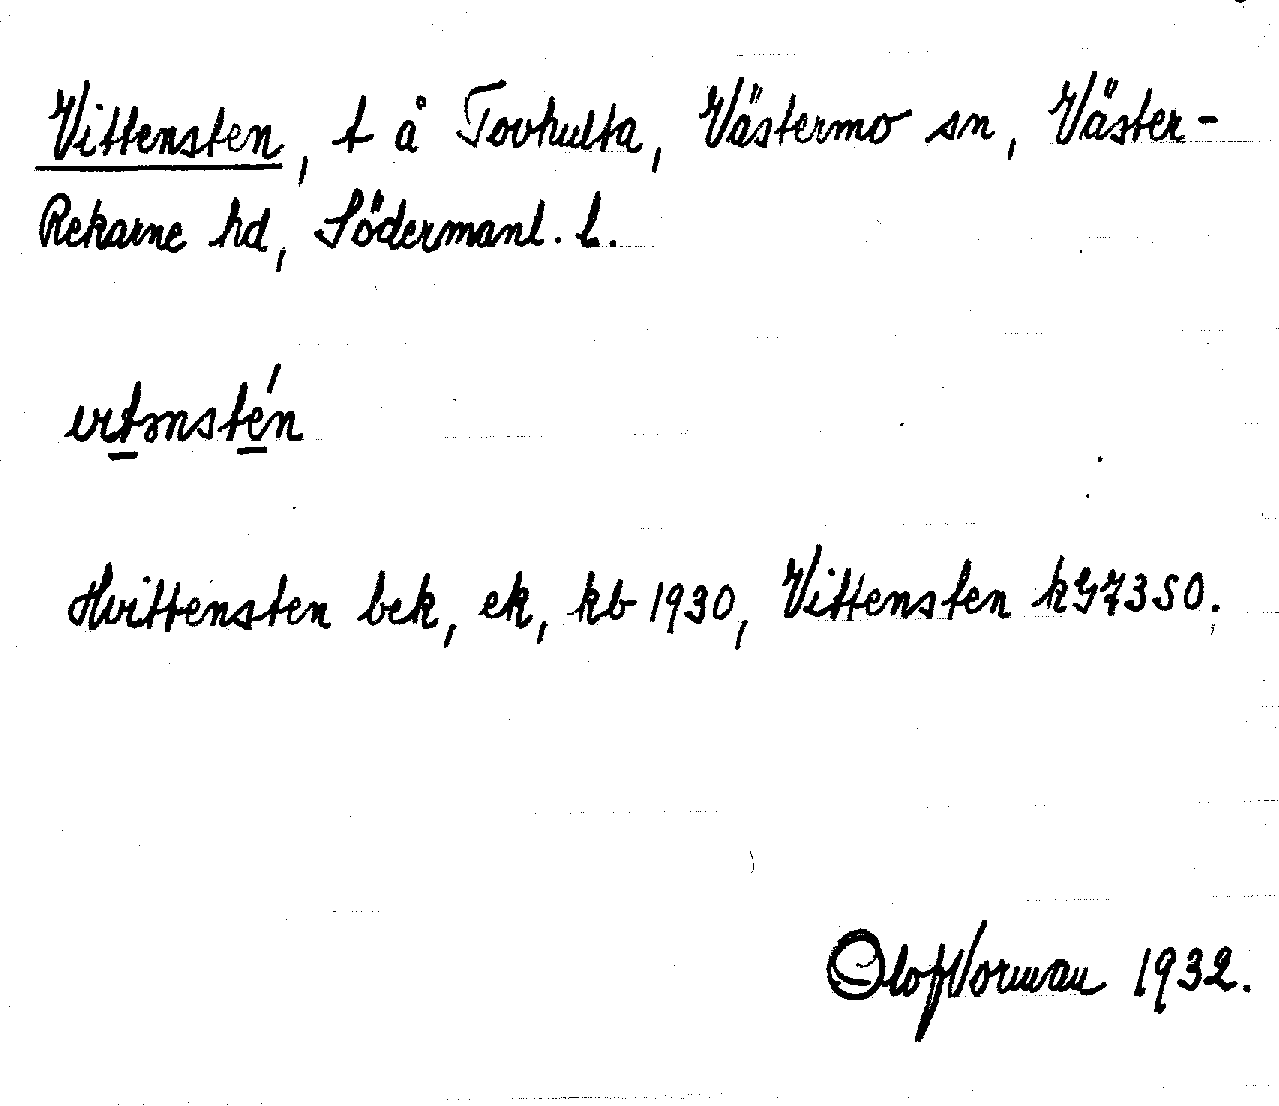 Vittensten, t å Tovhulta, Västermo sn, Väster-
Rekarne hd, Södermanl. l.
vıtənstén
Hvittensten bek, ek, kb 1930, Vittensten kG7350.
Olof Norman 1932.